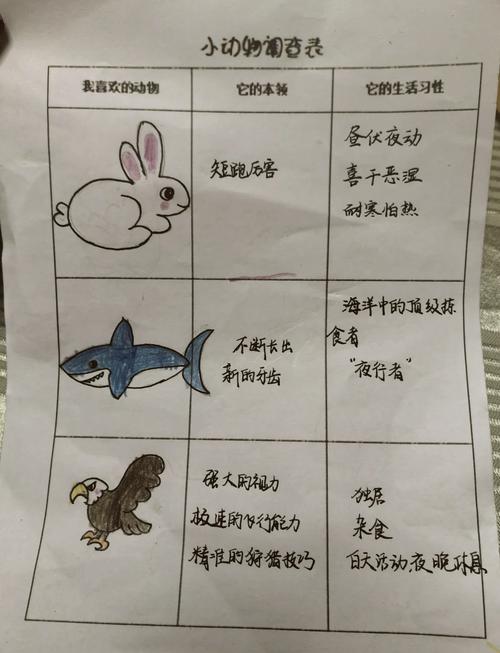 小动物调查表
我喜欢的动物
它的本领
它的生活习性
短跑厉害
昼伏夜动
喜干恶湿
耐寒怕热
不断长出
新的牙齿
海洋中的顶级掠
食者
“夜行者”
强大的视力
极速的飞行能力
精准的狩猎技巧
独居
杂食
白天活动夜晚休息